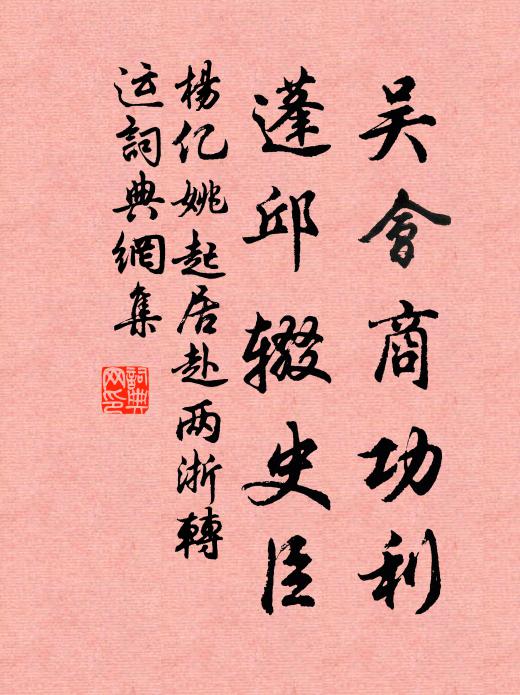 吴會商功利
蓬邱辍史臣
楊亿姚起居赴两浙轉
运詞典網集
詞典网印